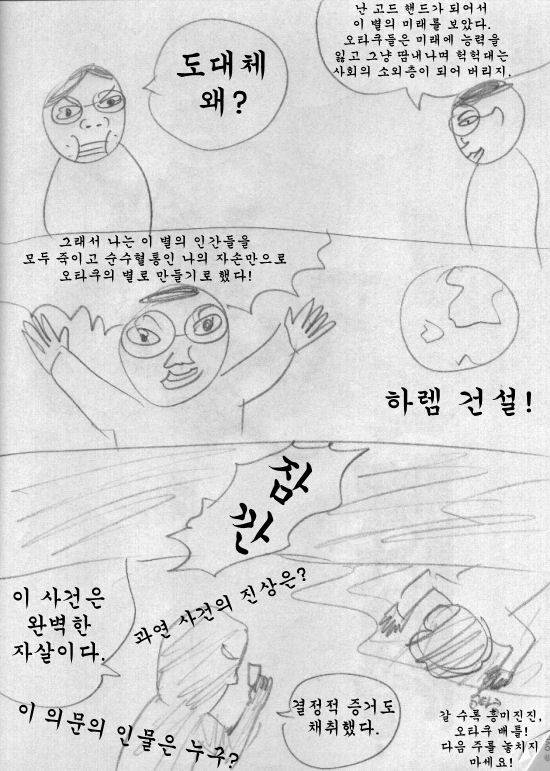 도대체
왜?
난 고드 핸드가 되어서
이 별의 미래를 보았다.
오타쿠들은 미래에 능력을
잃고 그냥 땀내나며 헉헉대는
사회의 소외층이 되어 버리지.
그래서 나는 이 별의 인간들을
모두 죽이고 순수혈통인 나의 자손만으로
오타쿠의 별로 만들기로 했다!
하렘 건설!
잠
깐
이 사건은
완벽한
자살이다.
과연 사건의 진상은?
이 의문의 인물은 누구?
결정적 증거도
채취했다.
갈 수록 흥미진진,
오타쿠 배틀!
다음 주를 놓치지
마세요!